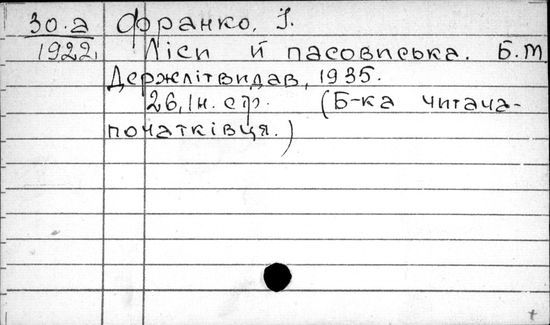 30.а Франко, І.
1922, Ліси й пасовиська. Б.М.
Держлітвидав, 1935.
26, Ін. ст. (Б-ка читача-
початківця.)